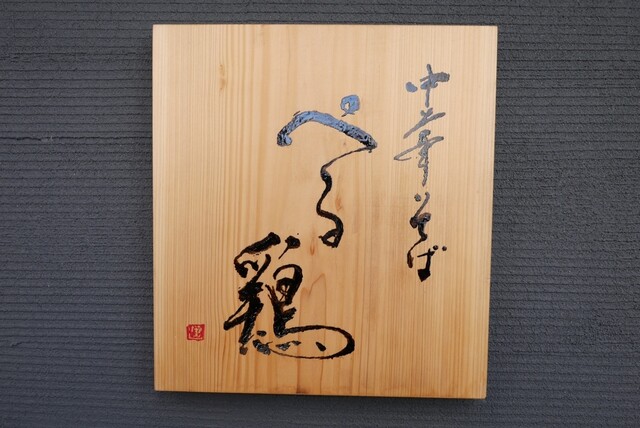 中華そば
ぺる鶏